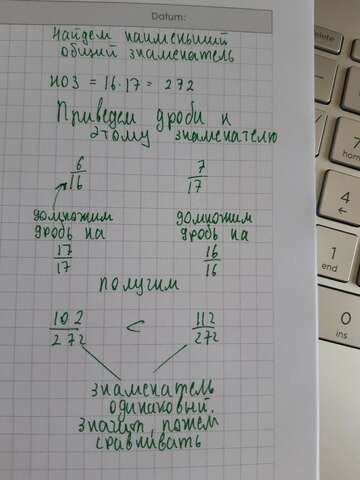 Datum:
Найдем наименьший
общий знаменатель
НОЗ = 16·17 = 272
Приведем дроби к
этому знаменателю
6/16 7/17
домножим домножим
дробь на дробь на
17/17 16/16
получим
102/272 < 112/272
знаменатель
одинаковый,
значит, можем
сравнивать
delete
7
home
4
1
end
0
ins